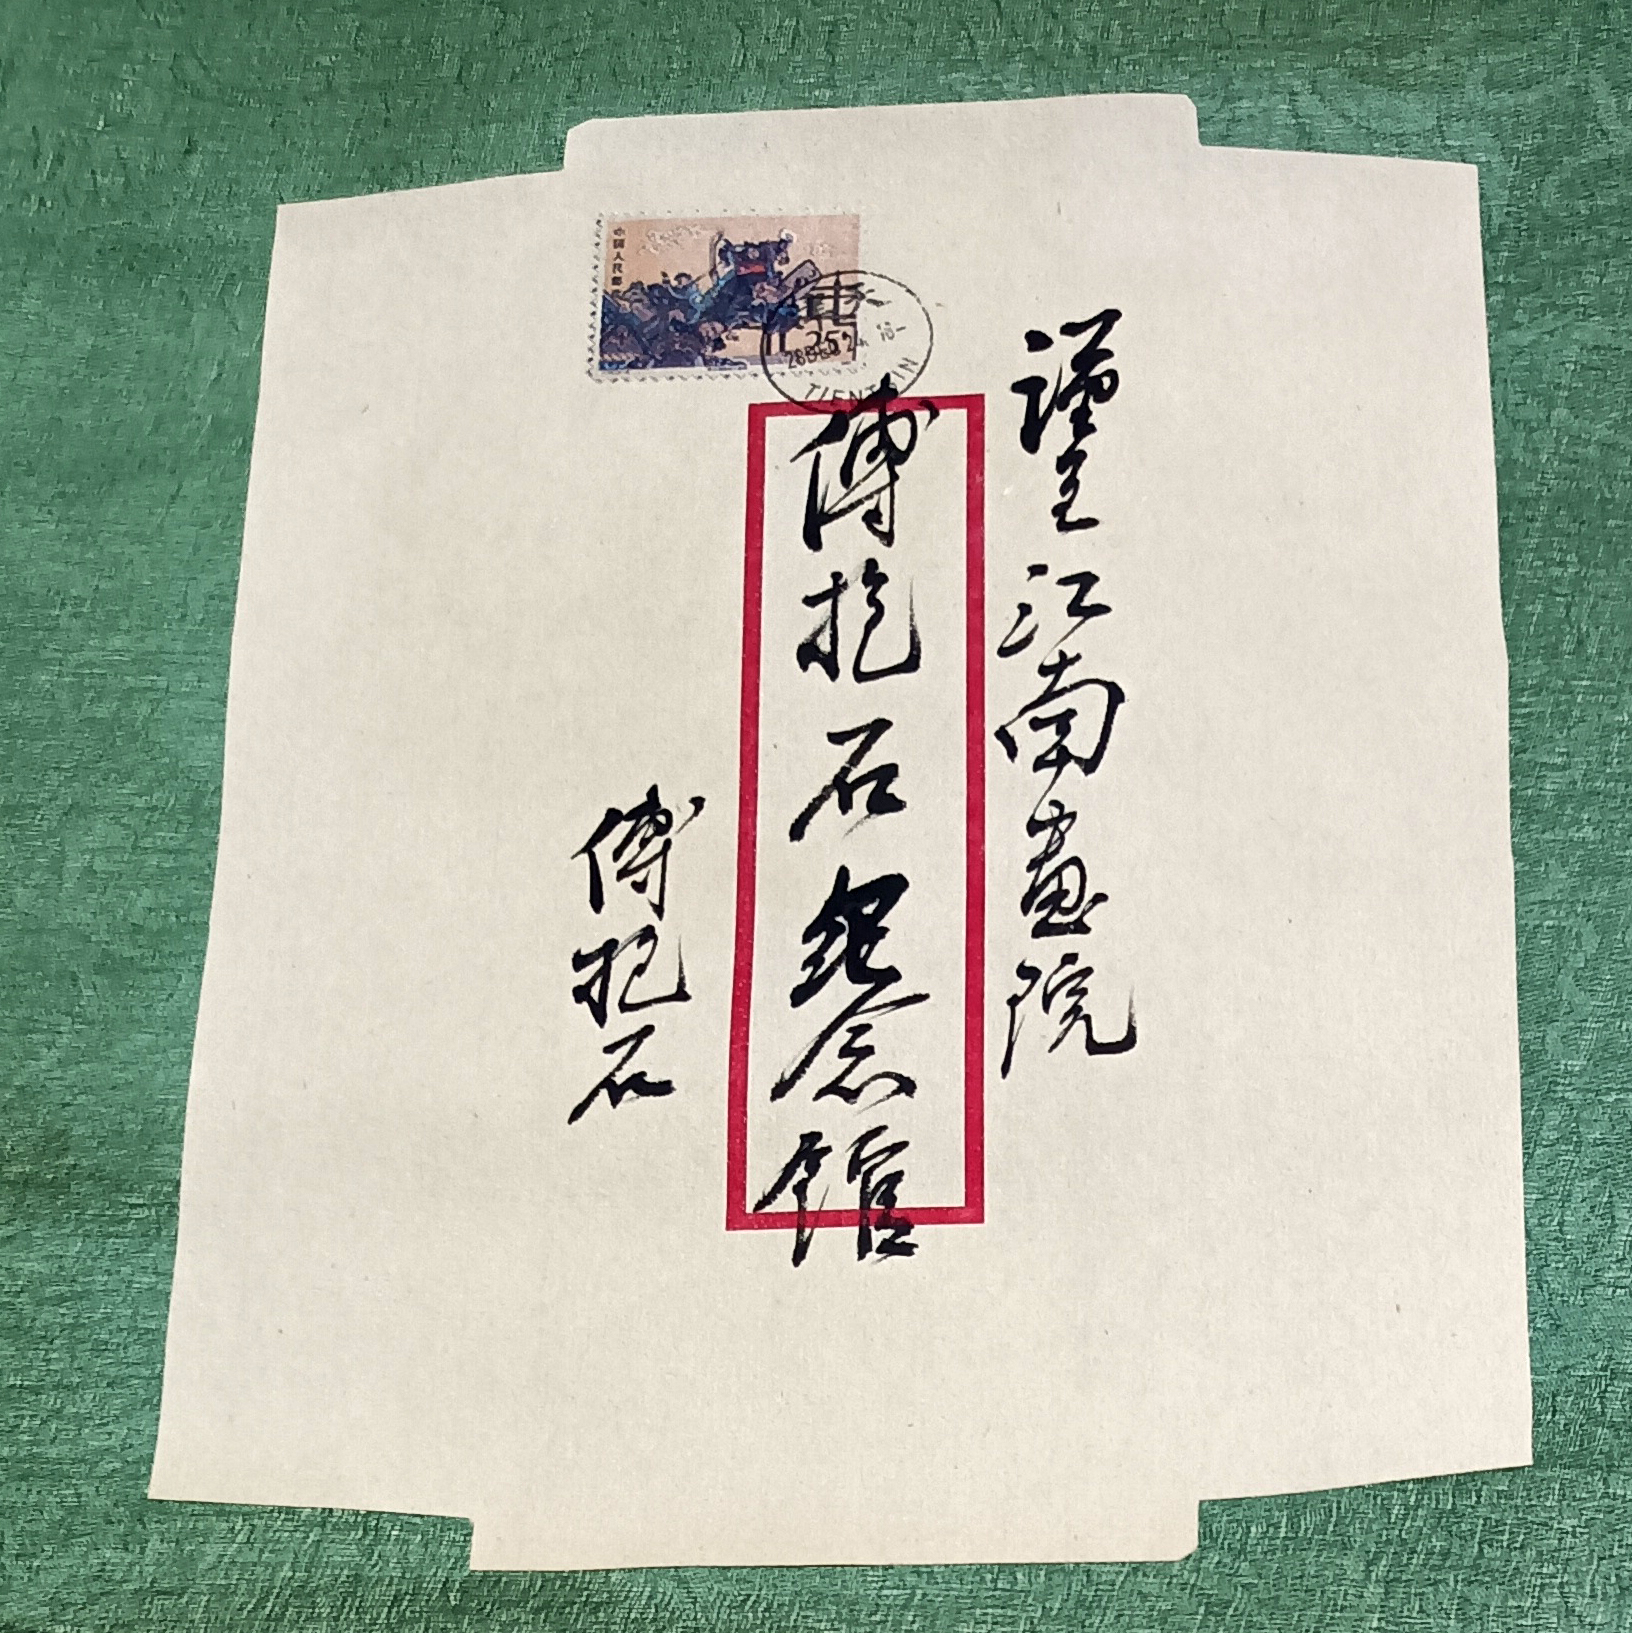 謹呈江南畫院
傅抱石紀念館
傅抱石
中国人民邮
TIENTSIN